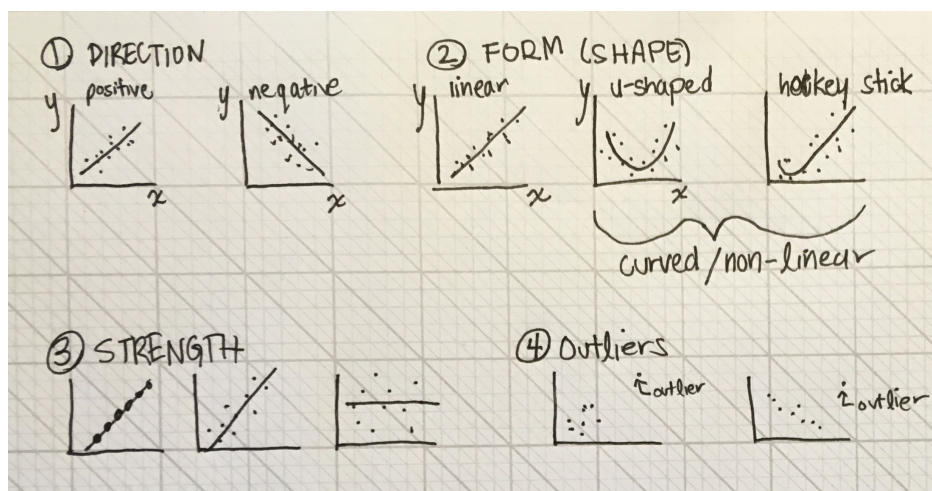 ① DIRECTION
y positive
x
y negative
x
② FORM (SHAPE)
y linear
x
y u-shaped
x
hockey stick
curved/non-linear
③ STRENGTH
④ Outliers
outlier
outlier